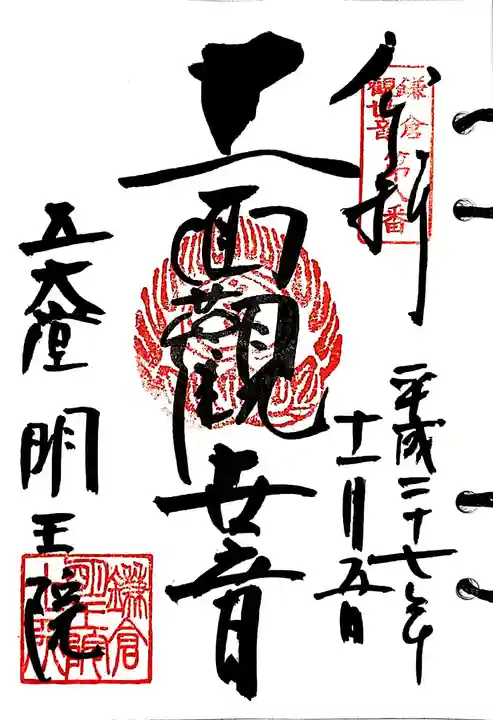 奉拝
鎌倉第八番
観世音
平成二十七年
十一月五日
十一面觀世音
五大堂
明王院
鎌倉
明王院